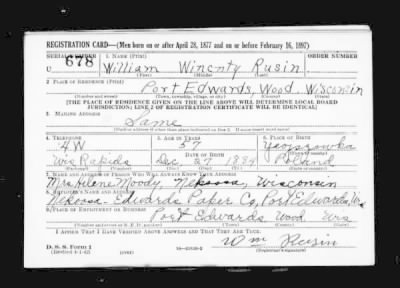 REGISTRATION CARD—(Men born on or after April 28, 1877 and on or before February 16, 1897)
SERIAL NUMBER 1. NAME (Print) ORDER NUMBER
U 678 William Wincnty Rusin
(First) (Middle) (Last)
2. PLACE OF RESIDENCE (Print)
Port Edwards, Wood, Wisconsin
(Number and street) (Town, township, village, or city) (County) (State)
[THE PLACE OF RESIDENCE GIVEN ON THE LINE ABOVE WILL DETERMINE LOCAL BOARD
JURISDICTION; LINE 2 OF REGISTRATION CERTIFICATE WILL BE IDENTICAL]
3. MAILING ADDRESS
Same
[Mailing address if other than place indicated on line 2. If same insert word same]
4. TELEPHONE 5. AGE IN YEARS 6. PLACE OF BIRTH
4W 57
DATE OF BIRTH
Wis Rapids Dec. 27 1884 Poland
(Exchange) (Number) (Mo.) (Day) (Yr.) (State or country)
7. NAME AND ADDRESS OF PERSON WHO WILL ALWAYS KNOW YOUR ADDRESS
Mrs Helene Moody, Nekoosa, Wisconsin
8. EMPLOYER'S NAME AND ADDRESS
Nekoosa-Edwards Paper Co, Port Edwards, Wis
9. PLACE OF EMPLOYMENT OR BUSINESS
Port Edwards Wood Wis
(Number and street or R. F. D. number) (Town) (County) (State)
I AFFIRM THAT I HAVE VERIFIED ABOVE ANSWERS AND THAT THEY ARE TRUE.
D. S. S. Form 1
(Revised 4-1-42) (over)
Wm Rusin